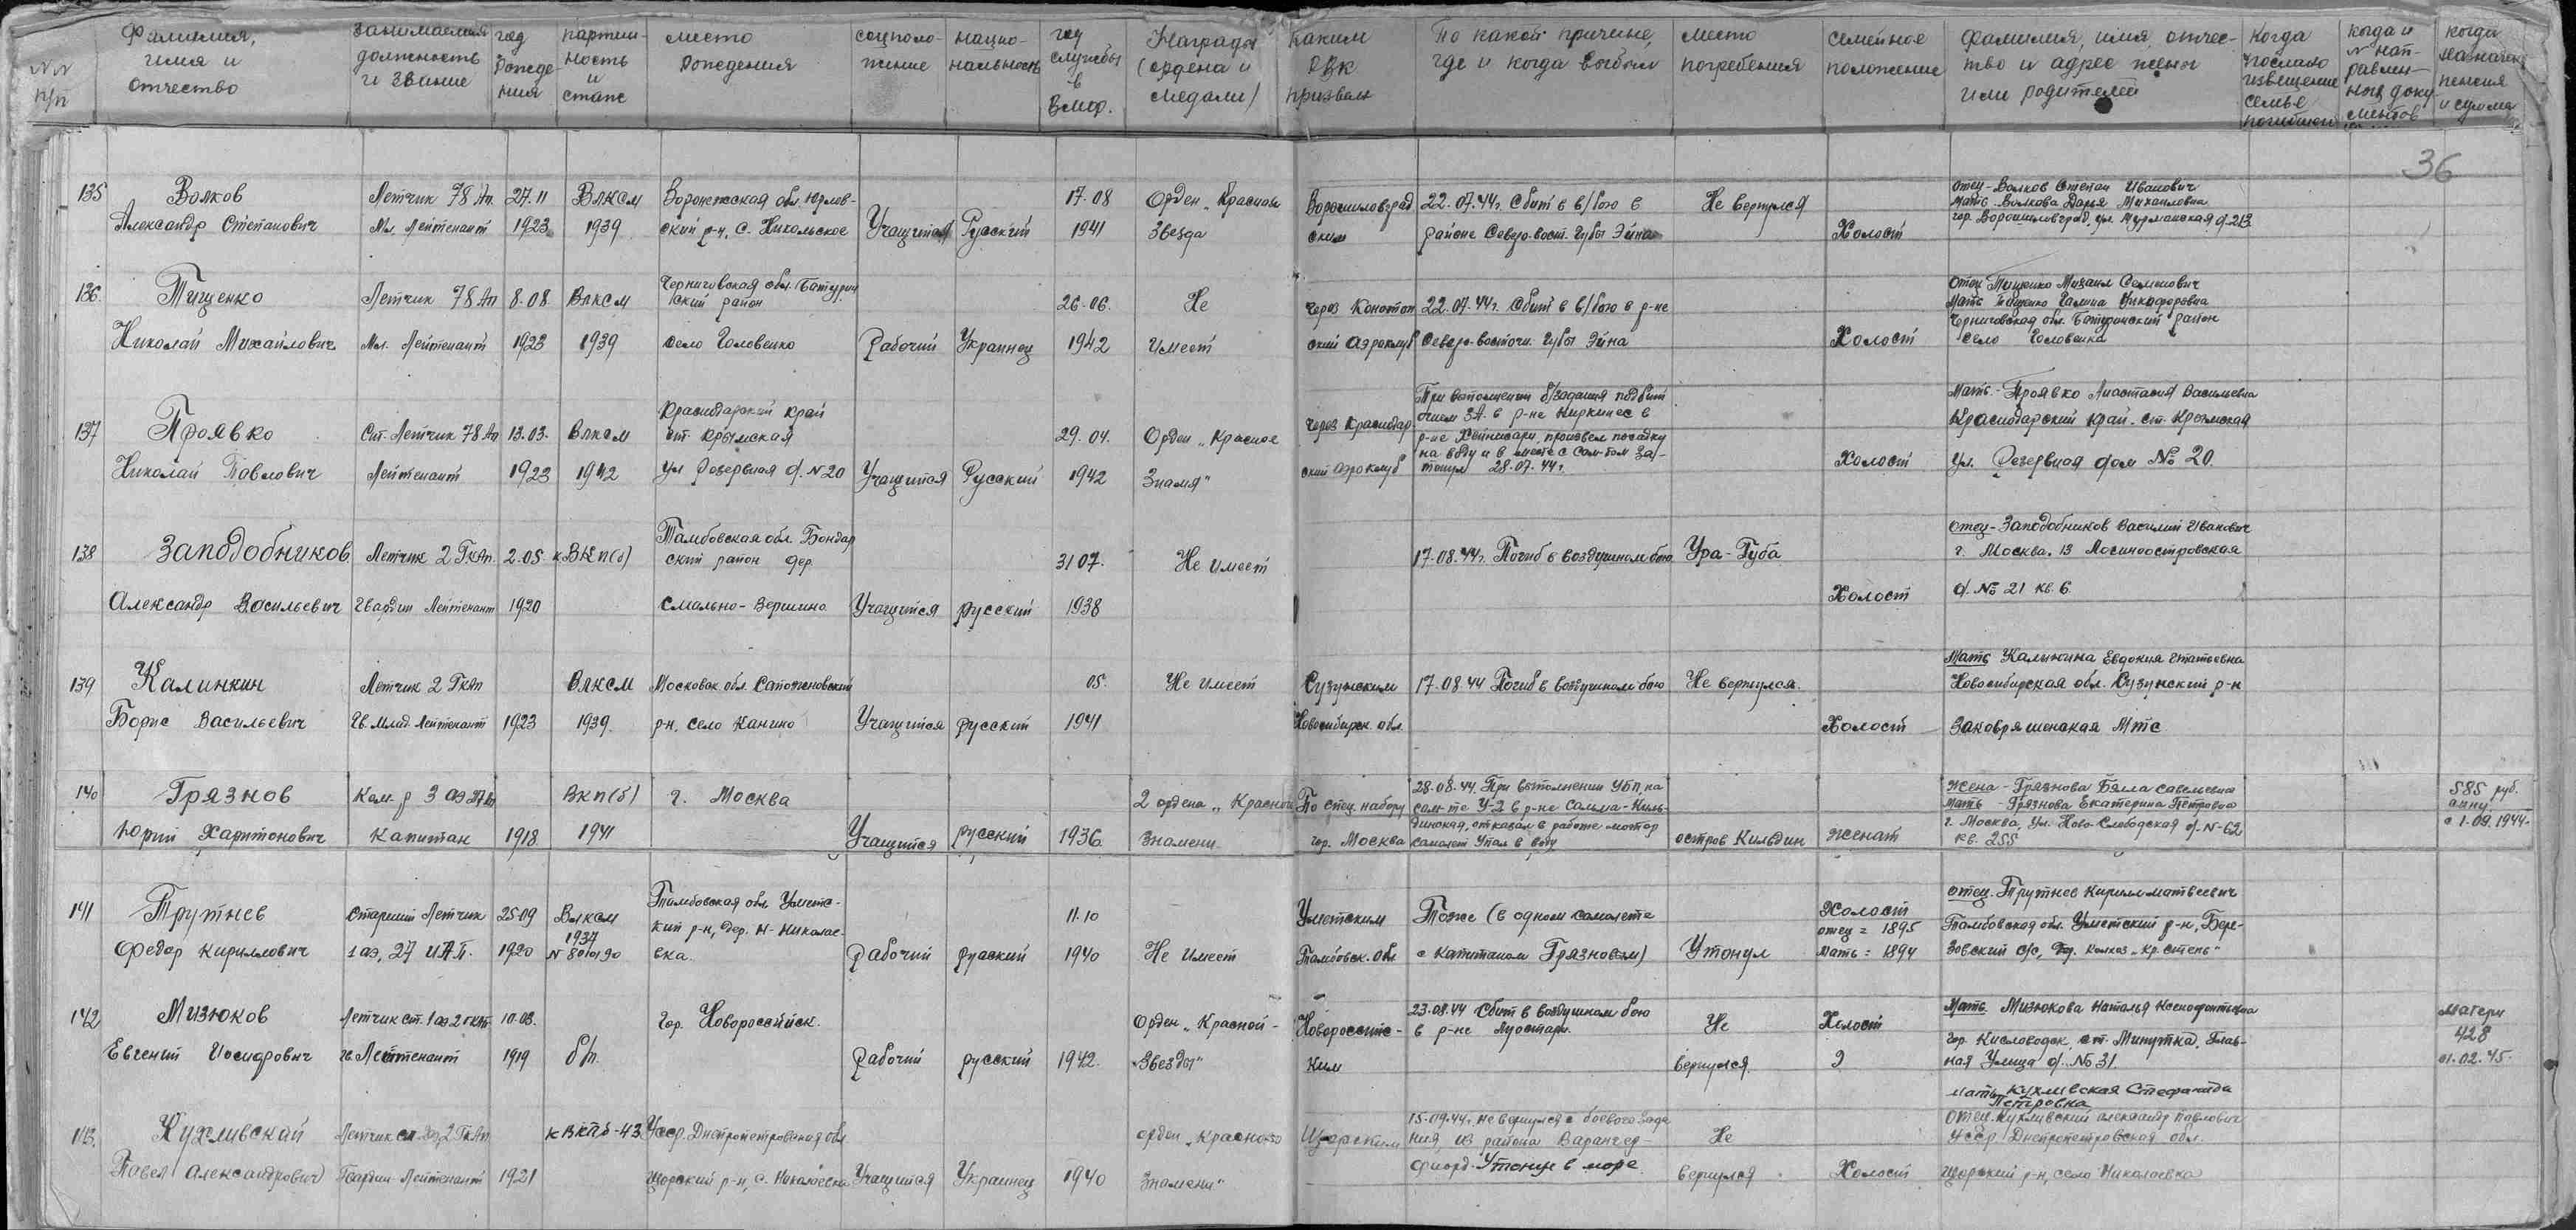 №№ п/п
Фамилия, имя и отчество
Занимаемая должность и звание
год рождения
партийность и стаж
место рождения
соцположение
национальность
год службы в ВМФ.
Награды (ордена и медали)
Каким РВК призван
По какой причине, где и когда выбыл
место погребения
семейное положение
Фамилия, имя, отчество и адрес жены или родителей
Когда послано извещение семье погибшего
когда и № направленных документов
когда назначена пенсия и сумма
36
135
Волков
Александр Степанович
Летчик 78 Ап.
Мл. Лейтенант
27.11
1923
ВЛКСМ
1939
Воронежская обл.
ский р-н, с. Никольское
Учащийся
Русский
17.08
1941
Орден „Красная
Звезда
Ворошиловград
ским
22.07.44г. Сбит в в/бою в
районе Северо-вост. Губы Эйна
Не вернулся
Холост
отец - Волков Степан Иванович
мать - Волкова Дарья Михайловна
гор. Ворошиловград, ул. Мурманская д-213
136.
Тищенко
Николай Михайлович
Летчик 78 Ап
Мл. Лейтенант
8.08
1923
ВЛКСМ
1939
Черниговская обл. Батурин
ский район
село Головенко
Рабочий
Украинец
26.06.
1942
Не
Имеет
через Конотоп
ский Аэроклуб
22.07.44г. Сбит в в/бою в р-не
Северо-восточн. Губы Эйна
Холост
отец Тищенко Михаил Семенович
Мать Тищенко Галина Никифоровна
Черниговская обл. Батуринский район
село Головенка
137
Проявко
Николай Павлович
Ст. Летчик 78 Ап
Лейтенант
13.03.
1923
ВЛКСМ
1942
Краснодарский край
ст. Крымская
ул Резервная д. № 20
Учащийся
Русский
29.04.
1942
Орден „Красное
Знамя"
через Краснодар
ский аэроклуб
При выполнении б/задания подбит
огнем ЗА. в р-не Киркинес в
р-не произвел посадку
на воду и в месте с сам-том за-
тонул 28.07.44г.
Холост
Мать - Проявко Анастасия Васильевна
Краснодарский край. ст. Крымская
ул. Резервная дом № 20
138
Заподобников
Александр Васильевич
Летчик 2 ГКАп.
Гвардии Лейтенант
2.05
1920
кВКП(б)
Тамбовская обл. Бондар
ский район дер.
Смально-Вершино
Учащийся
русский
31 07.
1938
Не имеет
17.08.44г. Погиб в воздушном бою
Ура-Губа
Холост
отец - Заподобников Василий Иванович
г. Москва. 13 Лосиноостровская
д. № 21 кв. 6.
139
Калинкин
Борис Васильевич
Летчик 2 ГКАп
Гв. Млад. Лейтенант
1923
ВЛКСМ
1939.
Московск обл. Сапожковский
р-н. село Канино
Учащийся
русский
05.
1941
Не имеет
Сузунским
Новосибирск. обл.
17.08.44 Погиб в воздушном бою
Не вернулся.
Холост
Мать Калинкина Евдокия Игнатьевна
Новосибирская обл. Сузунский р-н
Заковряшенская МТС
140
Грязнов
Юрий Харитонович
Ком-р 3 аэ 27 Ап
Капитан
1918
ВКП(б)
1941
г. Москва
Учащийся
русский
1936.
2 ордена „Красное
Знамени
По спец. набору
гор. Москва
28.08.44. При выполнении УБП, на
сам-те У-2 в р-не Сальма-Киль-
динская, отказал в работе мотор
самолет Упал в воду
остров Кильдин
женат
жена - Грязнова Бэла Савельевна
мать - Грязнова Екатерина Петровна
г. Москва, ул. Ново-Слободская д-№-62
кв. 255
585 руб.
с 1.09.1944.
141
Трутнев
Федор Кириллович
Старший Летчик
1 аэ, 27 ИАП.
25-09
1920
ВЛКСМ
1937
Тамбовская обл Уметс-
кий р-н, дер. Н-Николае-
вка.
Рабочий
русский
11.10
1940
Не имеет
Уметским
Тамбовск. обл
Тоже (в одном самолете
с капитаном Грязновым)
Утонул
Холост
отец = 1895
мать = 1894
отец. Трутнев Кирилл Матвеевич
Тамбовская обл. Уметский р-н, Бере-
зовский с/с, колхоз „Кр. степь"
142
Мизюков
Евгений Иосифович
Летчик ст. 1 аэ 2 гкап
гв. Лейтенант
10.03.
1919
б/п.
гор. Новороссийск.
Рабочий
русский
1942.
Орден „Красной-
Звезды"
Новороссийс-
ким
23.08.44 Сбит в воздушном бою
в р-не Луостари.
Не
вернулся
Холост
Э
Мать Мизюкова Наталья Ксенофонтовна
гор. Кисловодск, ст. Минутка, Глав-
ная Улица д. № 31.
матери
428
01.02.45.
143.
Кухливский
Павел Александрович
Летчик ст. 2 ГКАп
Гвардии Лейтенант
1921
кВКПб-43
УССР. Днепропетровская обл
Щорский р-н, с. Николаевка
Учащийся
Украинец
1940
орден „Красного
Знамени"
Щорским
15.09.44г. не вернулся с боевого зада
ния, из района Варангер-
фиорд. Утонул в море.
Не
вернулся
Холост
мать, Кухливская Стефанида
Петровна
отец. Кухливский Александр Павлович
УССР Днепропетровская обл.
Щорский р-н, село Николаевка